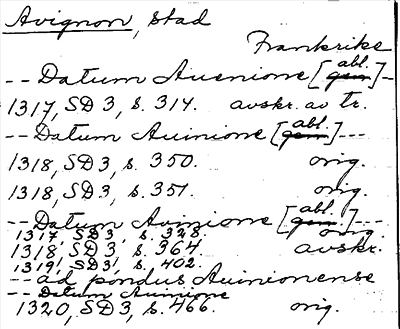 Avignon, stad
Frankrike
-- Datum Auenione [gen abl.] --
1317, SD 3, s. 314. avskr. av tr.
-- Datum Auinione [gen abl.] ---
1318, SD 3, s. 350. orig.
1318, SD 3, s. 351. orig.
-- Datum Avinione [gen abl.] ---
1317, SD 3, s. 328. orig.
1318, SD 3, s. 364. avskr.
1319, SD 3, s. 402.
-- ad pondus Auinionense
-- Datum Auinione
1320, SD 3, s. 466. orig.